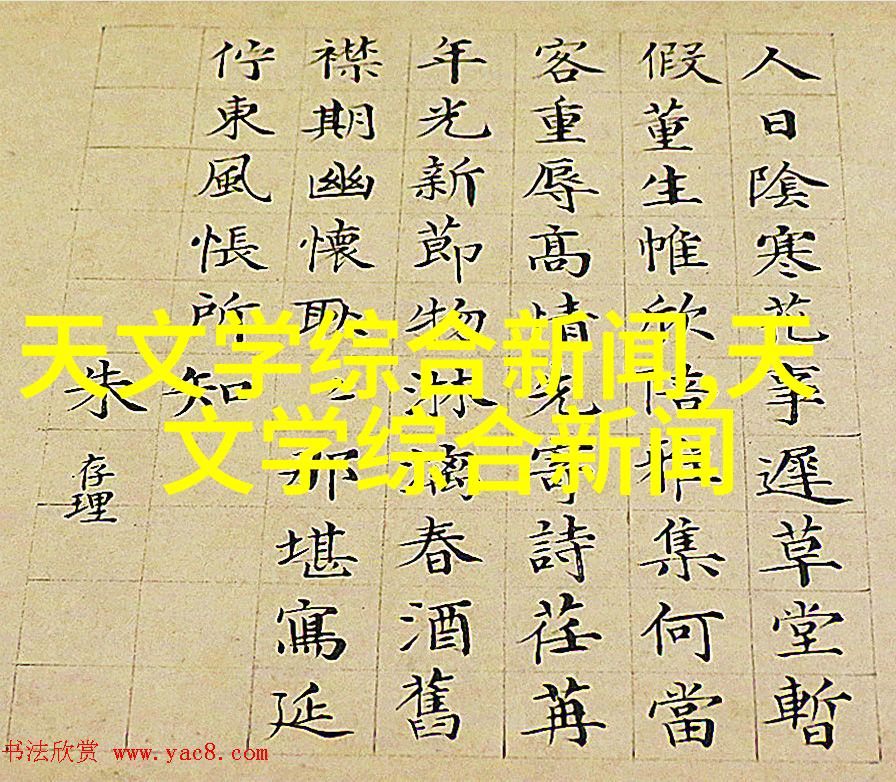 人日陰寒花事遲草堂暫
假董生帷欣陪集何當
客重辱高情先寄詩荏苒
年光新節物淋漓春酒舊
襟期幽懷耿〻那堪寫延
佇東風悵所知
朱存理
天文学综合新闻,天
文学综合新闻
书法欣赏 www.yac8.com